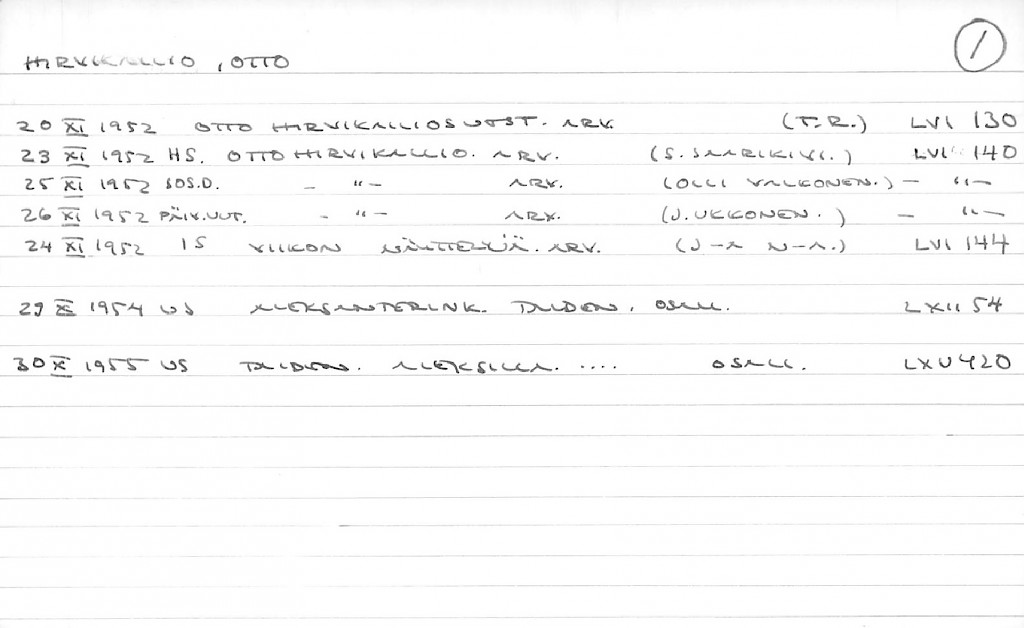 HIRVIKALLIO, OTTO ①
20 XI 1952 OTTO HIRVIKALLIOS UTST. ARV. (T.R.) LVI 130
23 XI 1952 HS. OTTO HIRVIKALLIO. ARV. (S. SAARIKIVI.) LVI 140
25 XI 1952 SOS.D. – " – ARV. (OLLI VALKONEN.) – " –
26 XI 1952 PÄIV.UUT. – " – ARV. (J. UKKONEN.) – " –
24 XI 1952 IS VIIKON NÄYTTELYJÄ. ARV. (J–A N–A.) LVI 144
29 X 1954 US ALEKSANTERINK. TAIDEN. OSALL. LXII 54
30 X 1955 US TAIDEN. ALEKSILLA. .... OSALL. LXV 420